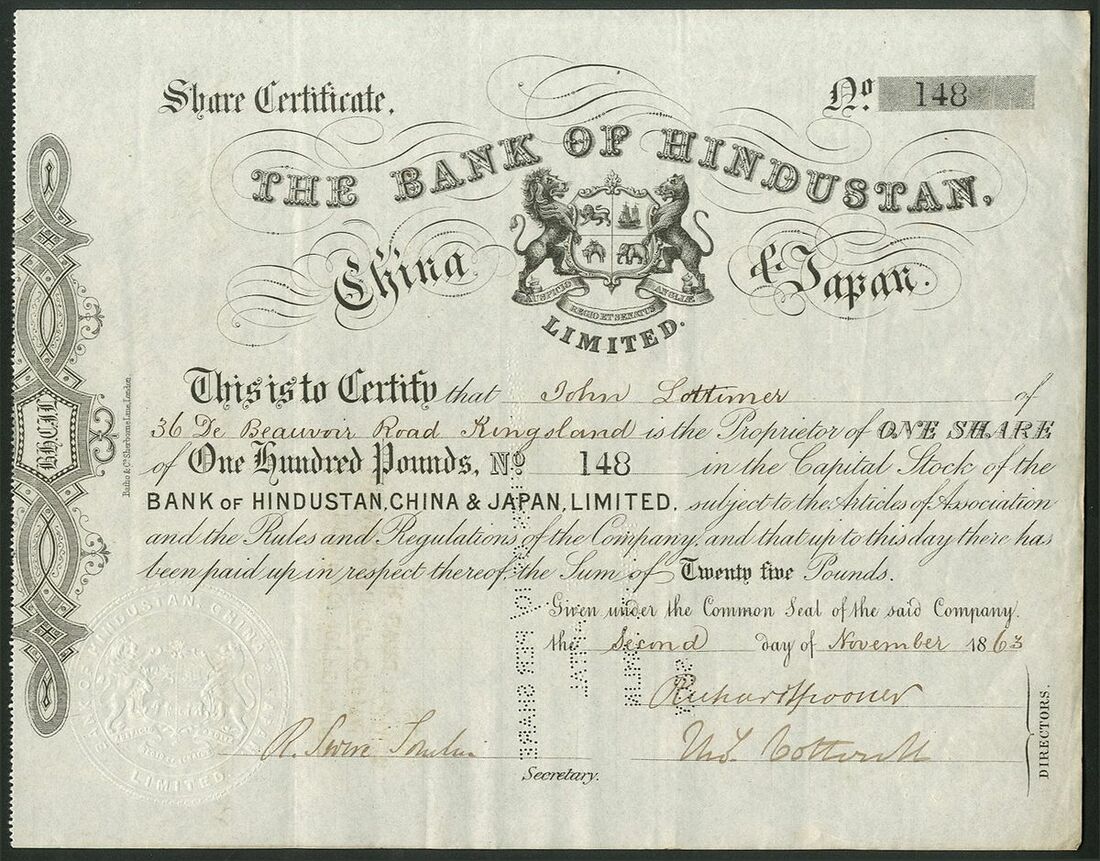 Share Certificate.
No. 148
THE BANK OF HINDUSTAN,
China & Japan.
AUSPICIO REGIS ET SENATUS ANGLIÆ
LIMITED.
This is to Certify that John Lottimer of
36 De Beauvoir Road Kingsland is the Proprietor of ONE SHARE
of One Hundred Pounds, No. 148 in the Capital Stock of the
BANK OF HINDUSTAN, CHINA & JAPAN, LIMITED. subject to the Articles of Association
and the Rules and Regulations of the Company, and that up to this day there has
been paid up in respect thereof, the Sum of Twenty five Pounds.
Given under the Common Seal of the said Company,
the Second day of November 1863
Richard Spooner
Thos. Cottrell
DIRECTORS.
R. Swire
Secretary.
BHCJL
Lane, London.
BANK OF HINDUSTAN, CHINA & JAPAN
LIMITED.